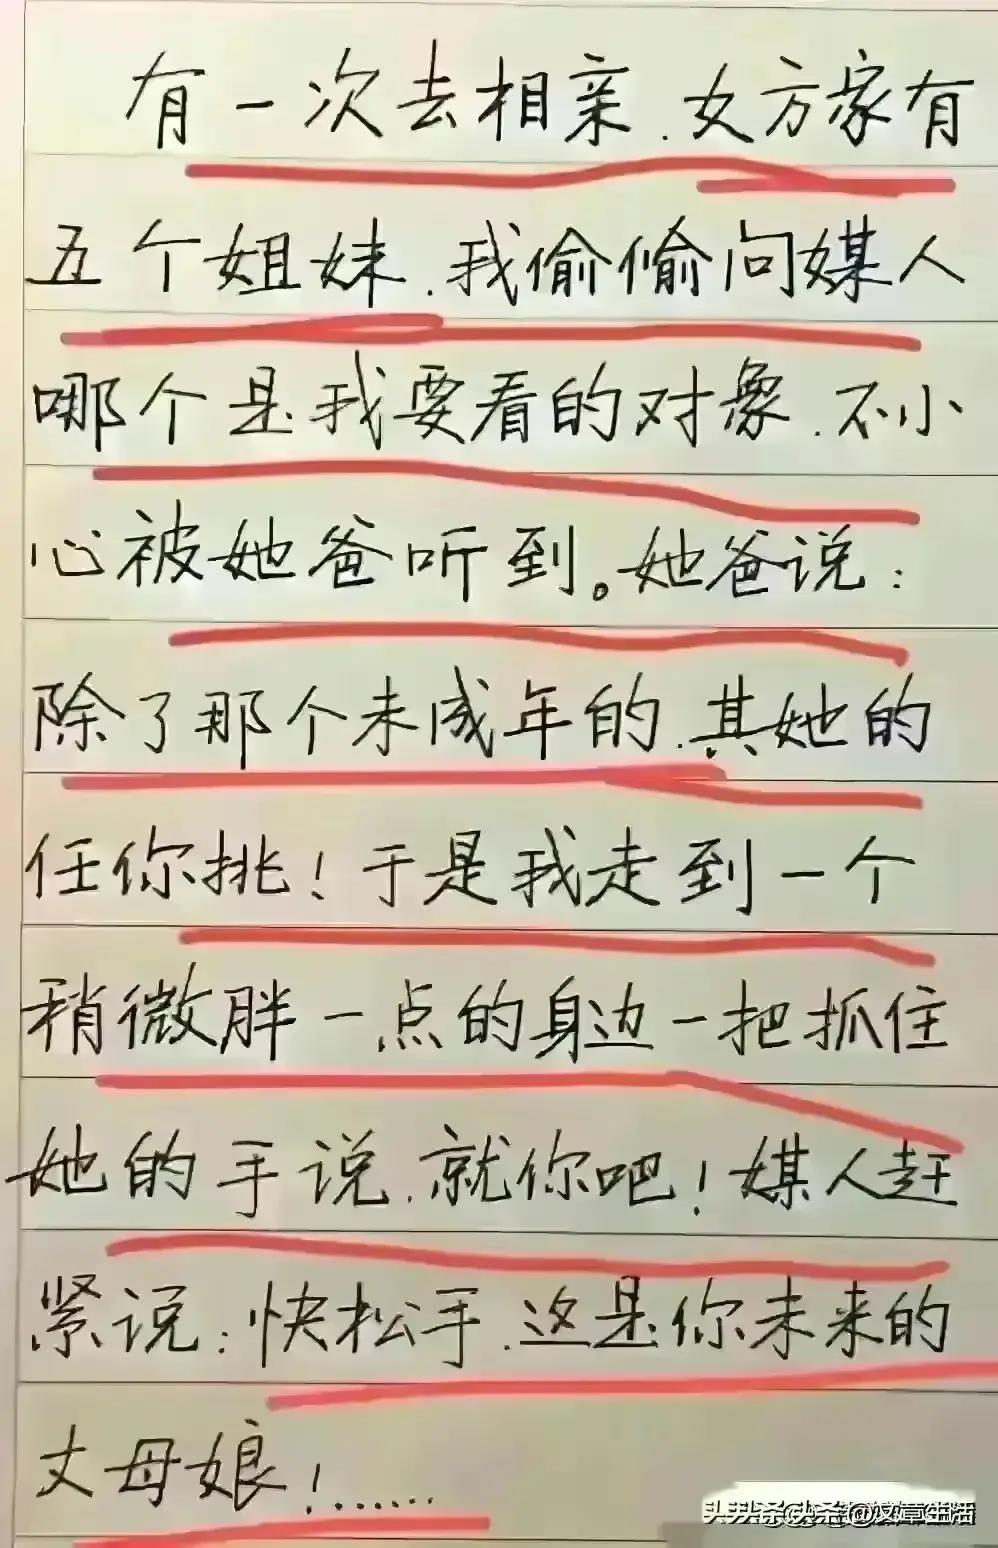 有一次去相亲.女方家有
五个姐妹.我偷偷问媒人
哪个是我要看的对象.不小
心被她爸听到。她爸说:
除了那个未成年的.其她的
任你挑!于是我走到一个
稍微胖一点的身边一把抓住
她的手说.就你吧!媒人赶
紧说:快松手.这是你未来的
丈母娘!……